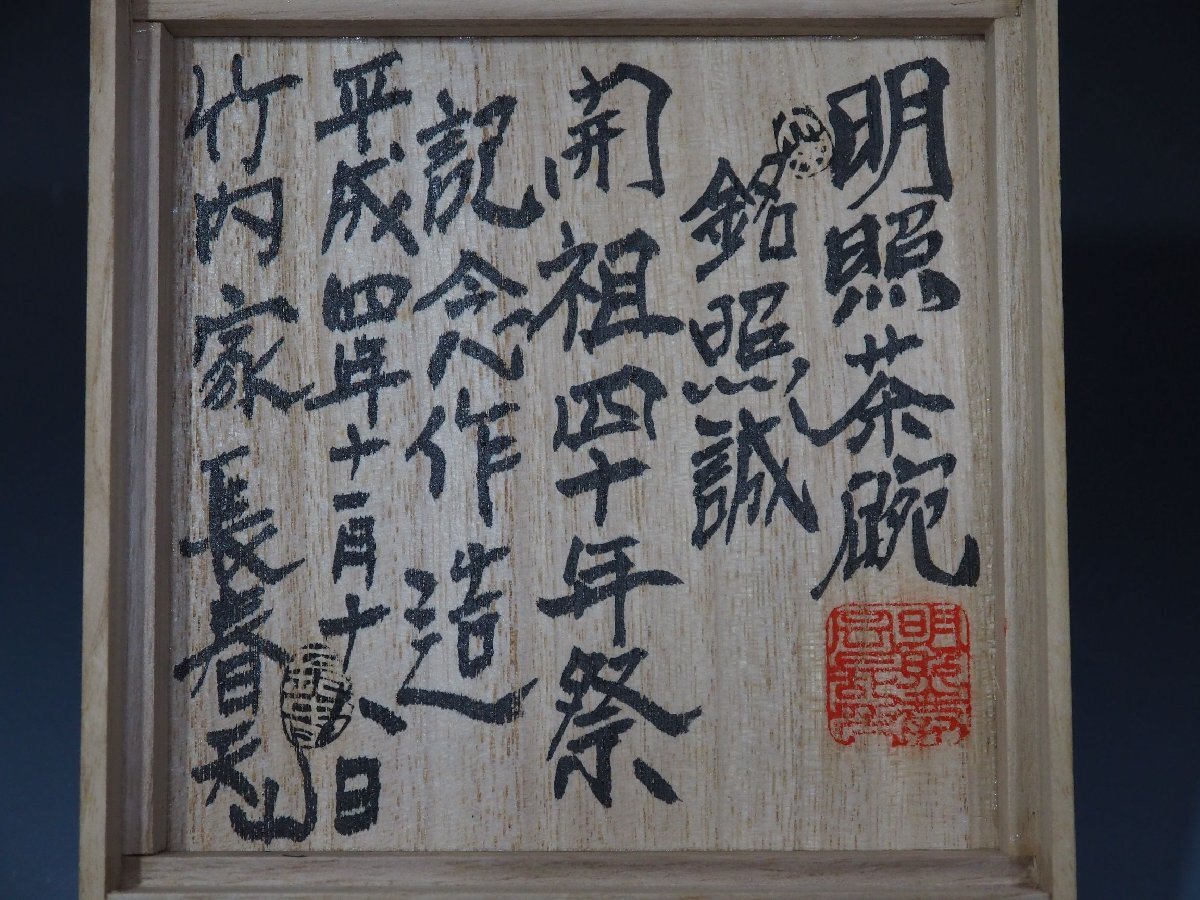 明照茶碗
銘照誠
開祖四十年祭
記念作造
平成四年十一月十八日
竹内家長春天山